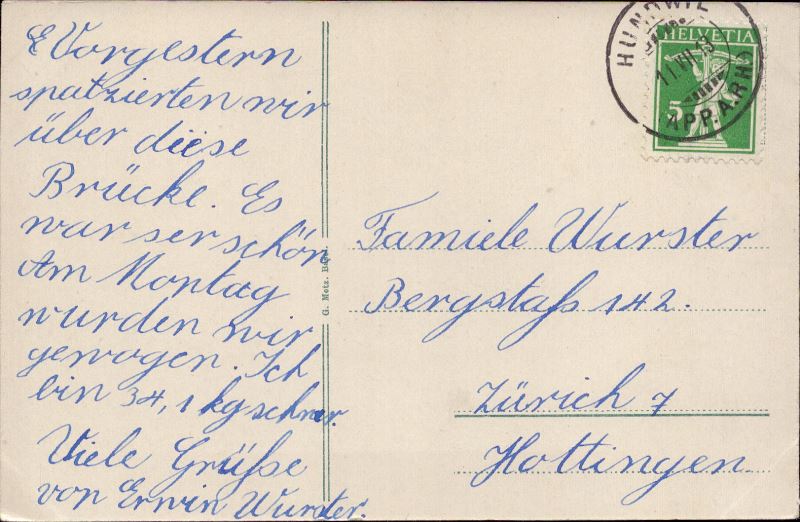 E Vorgestern
spatzierten wir
über diese
Brücke. Es
war ser schön
Am Montag
wurden wir
gewogen. Ich
bin 34,1 kg schwer.
Viele Grüße
von Erwin Wurster.
G. Metz. Basel.
HUNDWIL
11.VII.13
APP. A.RH.
HELVETIA
5
Famiele Wurster
Bergstaß 142.
Zürich 7
Hottingen